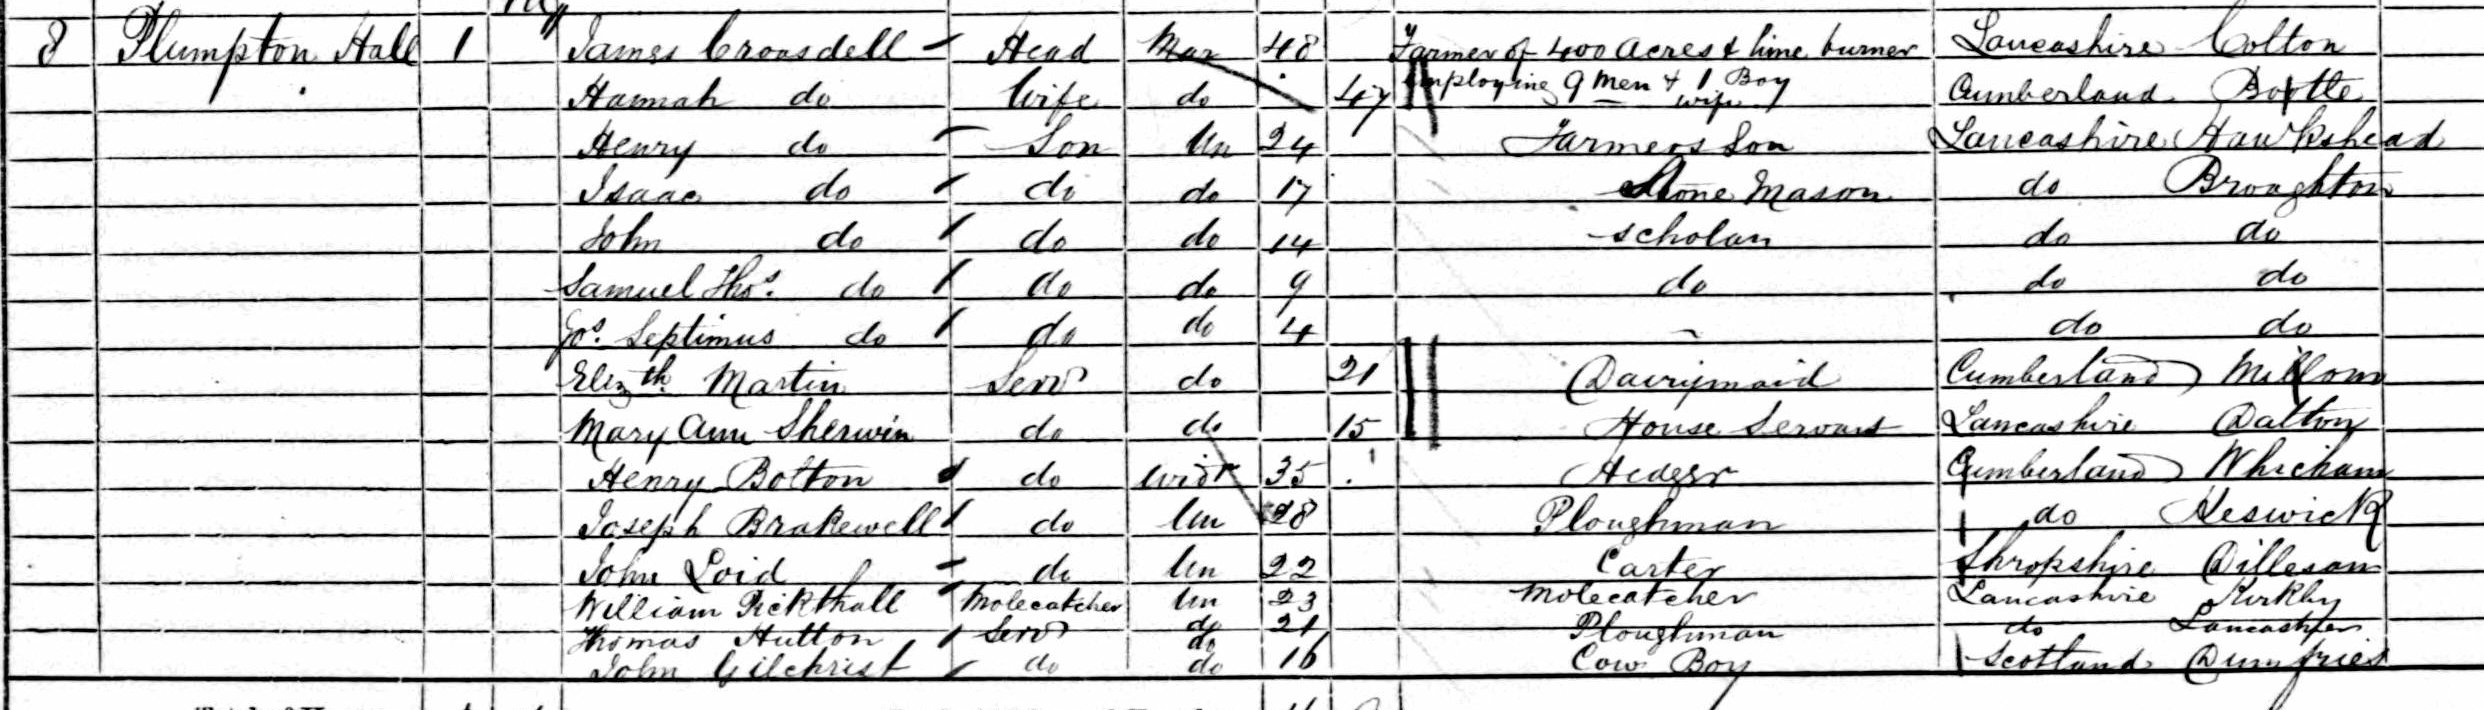 8 Plumpton Hall 1 James Croasdell Head Mar 48 Farmer of 400 acres & lime burner Lancashire Colton
Hannah do Wife do 47 employing 9 Men & 1 Boy wife Cumberland Bootle
Henry do Son Un 24 Farmers Son Lancashire Hawkshead
Isaac do do do 17 Stone Mason do Broughton
John do do do 14 scholar do do
Samuel Thos. do do do 9 do do do
Jos. Septimus do do do 4 do do
Elizth Martin Serv do 21 Dairymaid Cumberland Millom
Mary Ann Sherwin do do 15 House Servant Lancashire Dalton
Henry Bolton do Widr 35 Hedger Cumberland Whicham
Joseph Brakewell do Un 28 Ploughman do Keswick
John Loid do Un 22 Carter Shropshire
William Pickthall Molecatcher Un 23 Molecatcher Lancashire Kirkby
Thomas Hutton Serv do 21 Ploughman do Lancaster
John Gilchrist do do 16 Cow Boy Scotland Dumfries